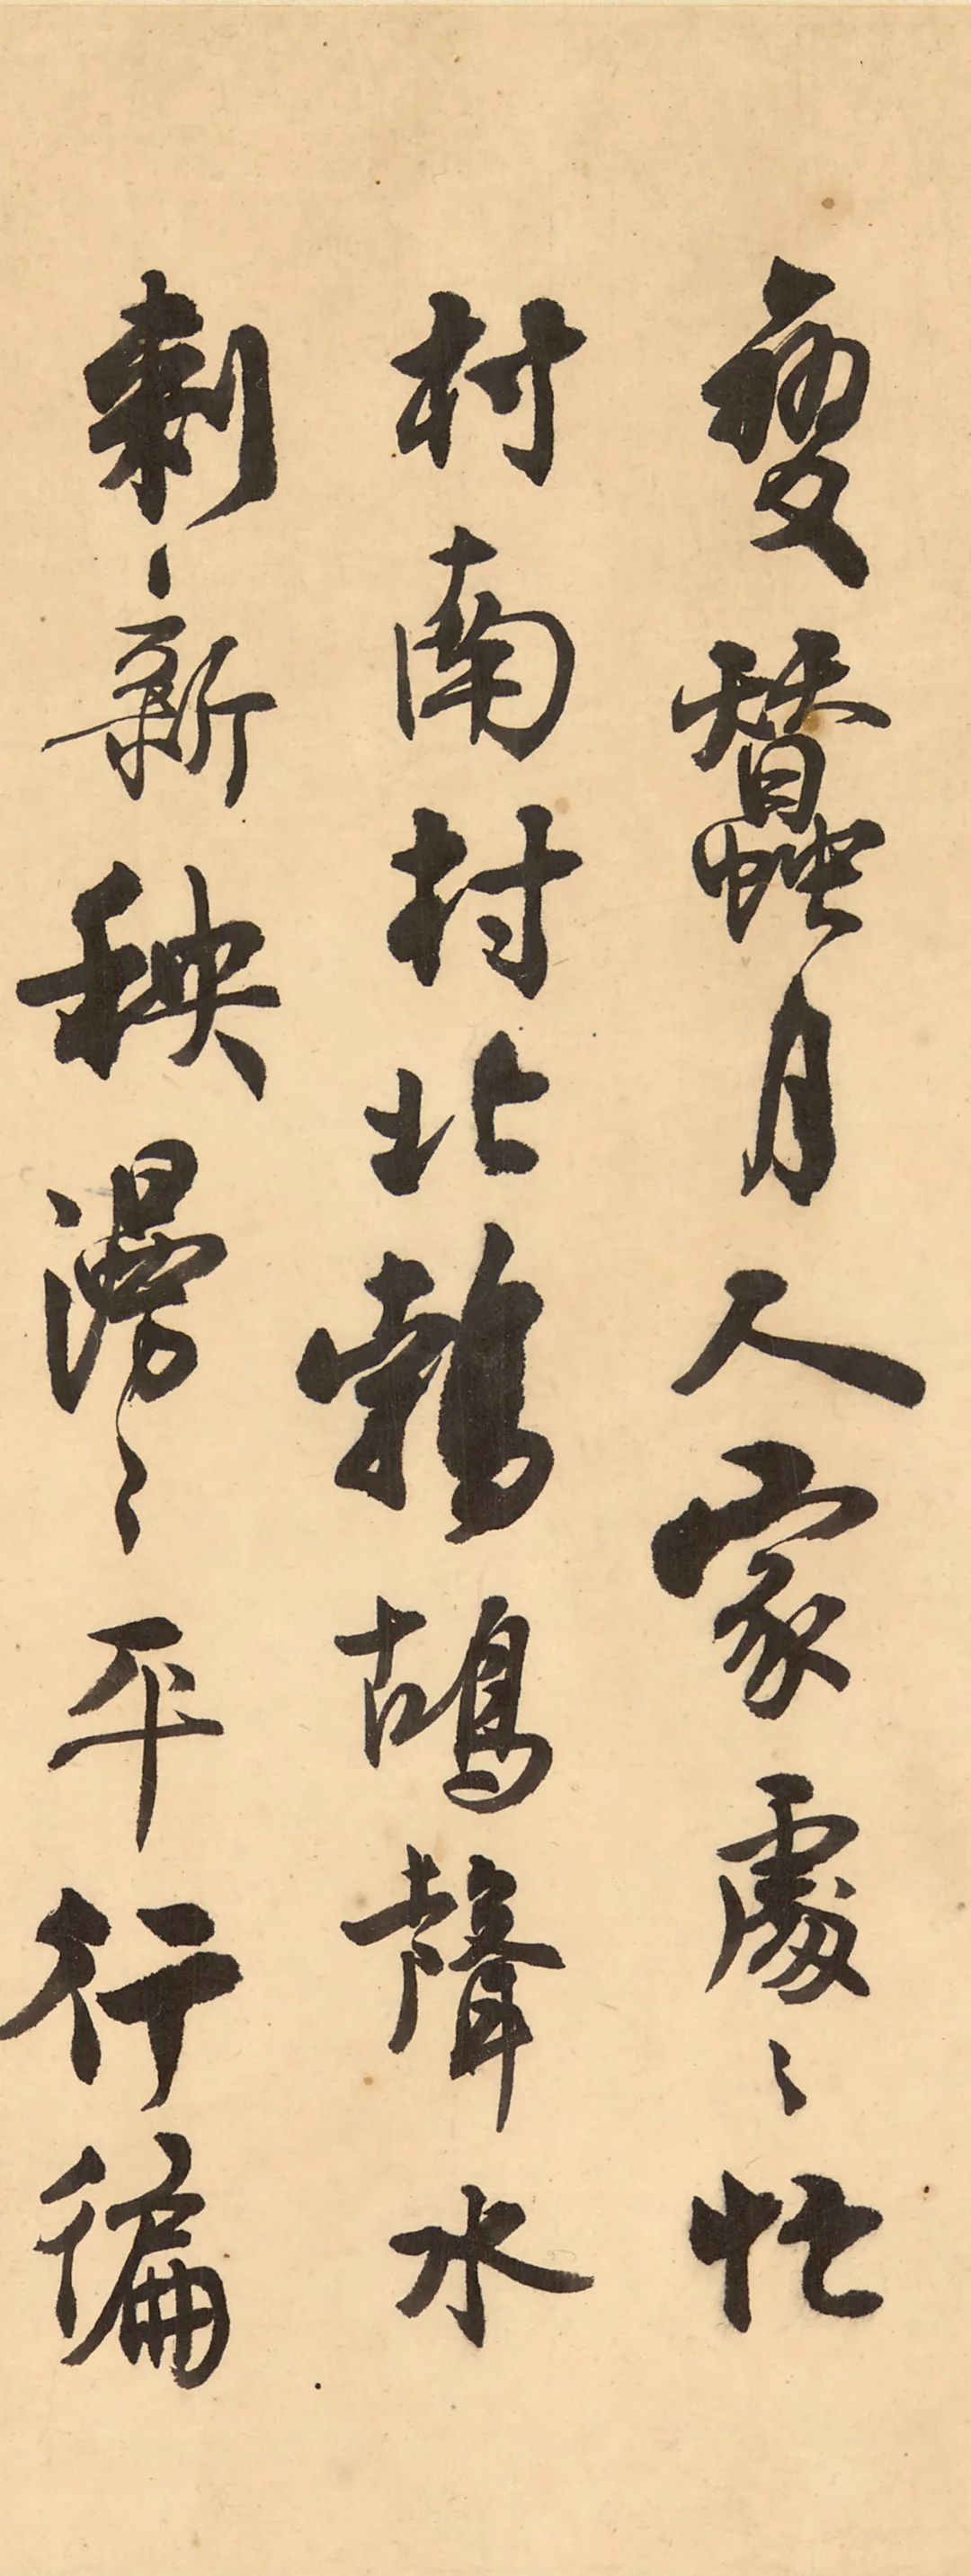 夏蠶月人家處〻忙
村南村北鵓鴣聲水
刺新秧漫〻平行徧